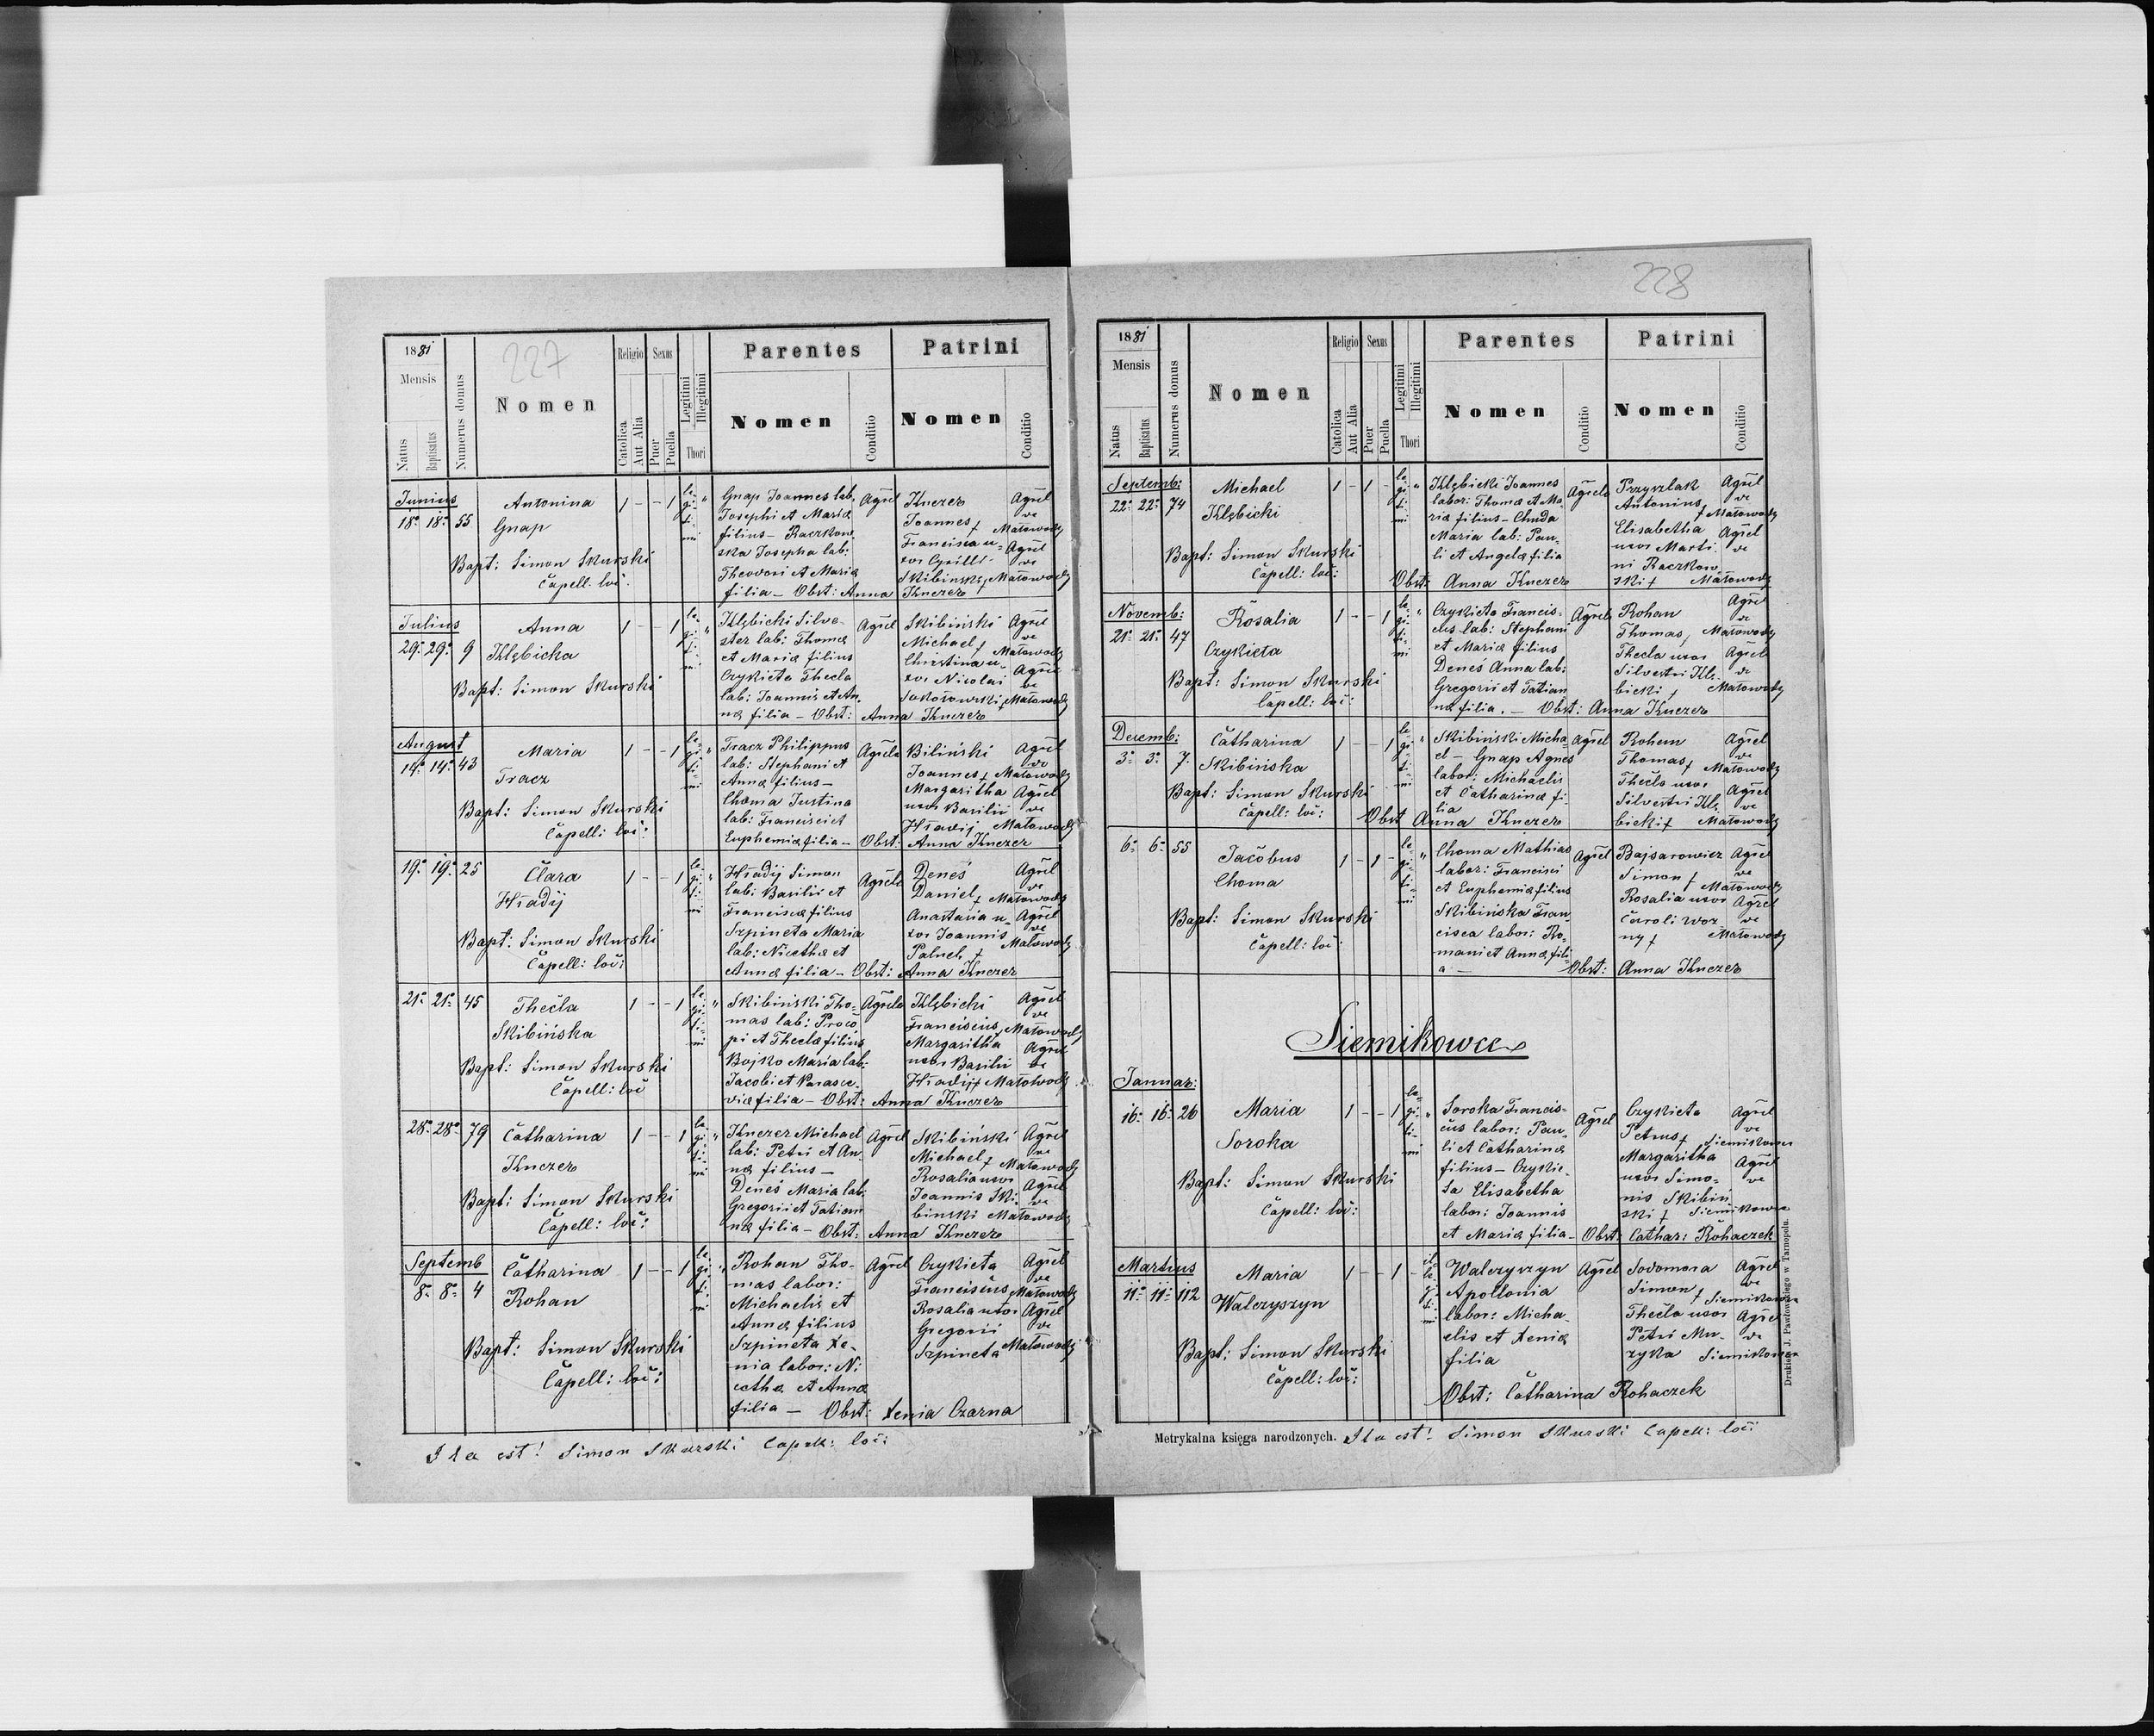 227
1881
Mensis
Natus
Baptisatus
Numerus domus
Nomen
Religio
Catolica
Aut Alia
Sexus
Puer
Puella
Legitimi
Illegitimi
Thori
Parentes
Nomen
Conditio
Patrini
Nomen
Conditio
Junius
18ª 18ª 55
Antonina
Gnap
Bapt: Simon Skurski
Capell: loci:
1 - - 1
le-
gi-
ti-
mi
Gnap Joannes lab.
Josephi et Mariæ
filius - Raczkow-
ska Josepha lab:
Theodori et Mariæ
filia - Obst: Anna Knezer
Agrel
Knezer
Joannes,
Francisca u-
xor Cyrilli
Skibinski,
Agrel
væ
Małowody
Agrel
væ
Małowody
Julius
29ª 29ª 9
Anna
Kłębicka
Bapt: Simon Skurski
1 - - 1
le-
gi-
ti-
mi
Kłębicki Silve-
ster lab: Thomæ
et Mariæ filius
Czykieta Thecla
lab: Joannis et An-
næ filia - Obst: Anna Knezer
Agrel
Skibiński
Michael,
Christina u-
xor Nicolai
Sokołowski,
Agrel
væ
Małowody
Agrel
væ
Małowody
August
14ª 14ª 43
Maria
Tracz
Bapt: Simon Skurski
Capell: loci:
1 - - 1
le-
gi-
ti-
mi
Tracz Philippus
lab: Stephani et
Annæ filius -
Choma Justina
lab: Francisci et
Euphemiæ filia - Obst: Anna Knezer
Agrelæ
Biliński
Joannes,
Margaritha
uxor Basilii
Hradij
Agrel
væ
Małowody
Agrel
væ
Małowody
19ª 19ª 25
Clara
Hradij
Bapt: Simon Skurski
Capell: loci:
1 - - 1
le-
gi-
ti-
mi
Hradij Simon
lab: Basilii et
Franciscæ filius
Szpineta Maria
lab: Nicethæ et
Annæ filia - Obst: Anna Knezer
Agrelæ
Deneś
Daniel,
Anastasia u-
xor Joannis
Paluch,
Agrel
væ
Małowody
Agrel
væ
Małowody
21ª 21ª 45
Thecla
Skibińska
Bapt: Simon Skurski
Capell: loci
1 - - 1
le-
gi-
ti-
mi
Skibiński Tho-
mas lab: Proco
pi et Theclæ filius
Bojko Maria lab:
Jacobi et Parasce-
viæ filia - Obst: Anna Knezer
Agrelæ
Kłębicki
Franciscus,
Margaritha
uxor Basilii
Hradij,
Agrel
væ
Małowody
Agrel
væ
Małowody
28ª 28ª 79
Catharina
Knezer
Bapt: Simon Skurski
Capell: loci:
1 - - 1
le-
gi-
ti-
mi
Knezer Michael
lab: Petri et An-
næ filius -
Deneś Maria lab:
Gregorii et Tatian
næ filia - Obst: Anna Knezer
Agrel
Skibiński
Michael,
Rosalia uxor
Joannis Ski-
binski
Agrel
væ
Małowody
Agrel
væ
Małowody
Septemb
8ª 8ª 4
Catharina
Rohan
Bapt: Simon Skurski
Capell: loci:
1 - - 1
le-
gi-
ti-
mi
Rohan Tho-
mas labor:
Michaelis et
Annæ filius
Szpineta Xe-
nia labor: Ni-
cethæ et Annæ
filia - Obst: Xenia Czarna
Agrel
Czykieta
Franciscus,
Rosalia uxor
Gregorii
Szpineta
Agrel
væ
Małowody
Agrel
væ
Małowody
Ita est! Simon Skurski Capell: loci:
228
1881
Mensis
Natus
Baptisatus
Numerus domus
Nomen
Religio
Catolica
Aut Alia
Sexus
Puer
Puella
Legitimi
Illegitimi
Thori
Parentes
Nomen
Conditio
Patrini
Nomen
Conditio
Septemb:
22ª 22ª 74
Michael
Kłębicki
Bapt: Simon Skurski
Capell: loci:
1 - 1 -
le-
gi-
ti-
mi
Kłębicki Joannes
labor: Thomæ et Ma-
riæ filius - Chuda
Maria lab: Pau-
li et Angelæ filia
Obst: Anna Knezer
Agrelæ
Przyszlak
Antonius,
Elisabetha
uxor Marti-
ni Raczkow-
ski,
Agrel
væ
Małowody
Agrel
væ
Małowody
Novemb:
21ª 21ª 47
Rosalia
Czykieta
Bapt: Simon Skurski
Capell: loci:
1 - - 1
le-
gi-
ti-
mi
Czykieta Francis-
cus lab: Stephani
et Mariæ filius
Deneś Anna lab:
Gregorii et Tatian
næ filia. - Obst: Anna Knezer
Agrelæ
Rohan
Thomas,
Thecla uxor
Silvestri Kłę-
bicki,
Agrel
væ
Małowody
Agrel
væ
Małowody
Decemb:
3ª 3ª 7
Catharina
Skibińska
Bapt: Simon Skurski
Capell: loci:
1 - - 1
le-
gi-
ti-
mi
Skibiński Micha-
el - Gnap Agnes
labor: Michaelis
et Catharinæ fi-
lia
Obst Anna Knezer
Agrel
Rohan
Thomas,
Thecla uxor
Silvestri Kłę-
bicki,
Agrel
væ
Małowody
Agrel
væ
Małowody
6ª 6ª 55
Jacobus
Choma
Bapt: Simon Skurski
Capell: loci:
1 - 1 -
le-
gi-
ti-
mi
Choma Mathias
labor: Francisci
et Euphemiæ filius
Skibińska Fran
cisca labor: Ro-
mani et Annæ fili-
a - Obst: Anna Knezer
Agrel
Bajsarowicz
Simon,
Rosalia uxor
Caroli Woz
ny,
Agrel
væ
Małowody
Agrel
væ
Małowody
Siemikowce
Januar:
16ª 16ª 26
Maria
Soroka
Bapt: Simon Skurski
Capell: loci:
1 - - 1
le-
gi-
ti-
mi
Soroka Francis-
cus labor: Pau-
li et Catharinæ
filius - Czykie-
ta Elisabetha
labor: Joannis
et Mariæ filia - Obst: Cathar: Rohaczek
Agrel
Czykieta
Petrus,
Margaritha
uxor Simo-
nis Skibiń
ski,
Agrel
væ
Siemikowce
Agrel
væ
Siemikowce
Martius
11ª 11ª 112
Maria
Walczyszyn
Bapt: Simon Skurski
Capell: loci:
1 - - 1 -
il-
le-
gi-
ti-
mi
Walczyszyn
Apollonia
labor: Micha-
elis et Xeniæ
filia
Obst: Catharina Rohaczek
Agrel
Sodomora
Simon,
Thecla uxor
Petri Mu-
zyka
Agrel
væ
Siemikowce
Agrel
væ
Siemikowce
Drukiem J. Pawłowskiego w Tarnopolu.
Metrykalna księga narodzonych. Ita est! Simon Skurski Capell: loci